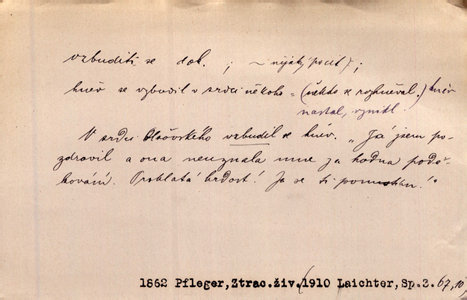 vzbuditi se dok. ; ~ nějaký pocit);
hněv se vzbudil v srdci někoho = (někdo se rozhněval;) hněv
nastal, vznikl
V srdci Olšovského vzbudil se hněv. „Já jsem po-
zdravil a ona neuznala mne za hodna podě-
kování. Proklatá hrdost! Já se ti pomstím!"
1862 Pfleger, Ztrac.živ.(1910 Laichter, Sp.2. 67,10)